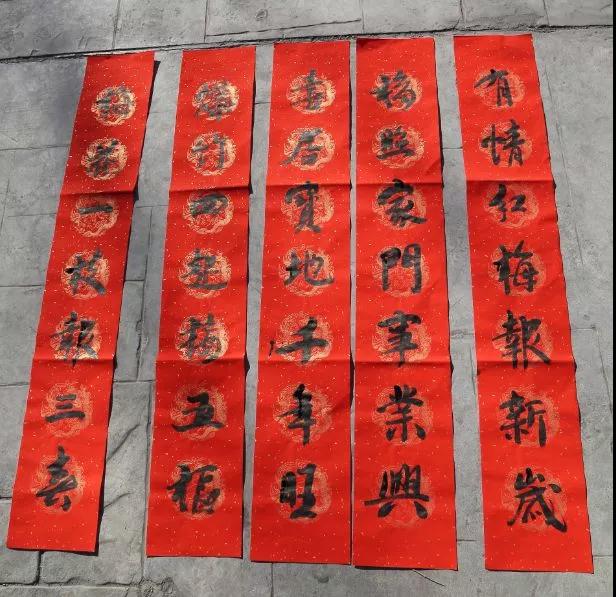 有情红梅報新歲
福照家門事業興
喜居寶地千年旺
爆竹四起五福
一枝報三春